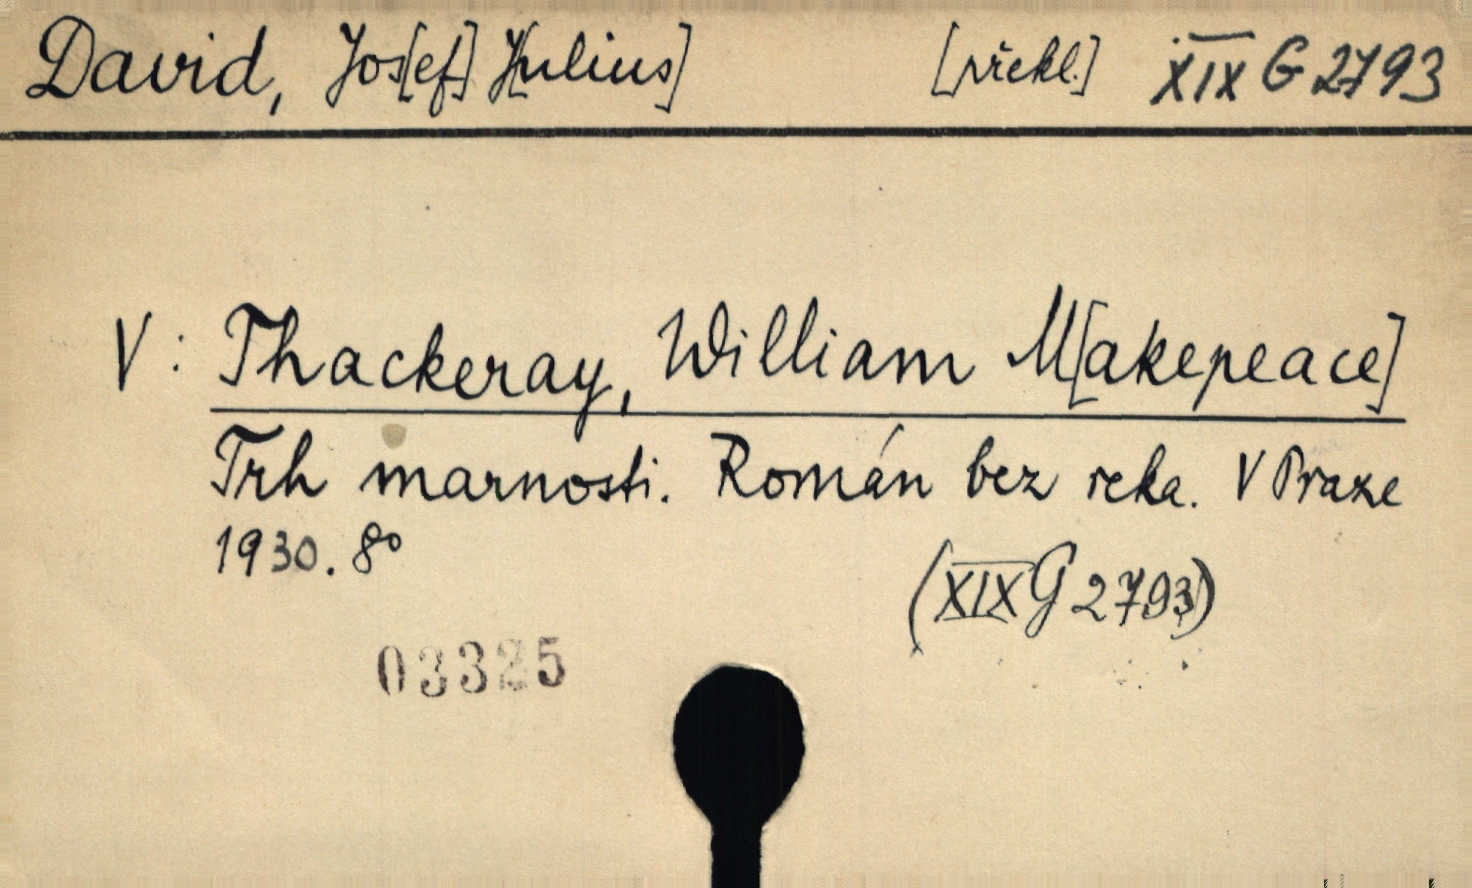 David, Jos[ef] J[ulius] [překl.] XIX G 2793
V: Thackeray, William M[akepeace]
Trh marnosti. Román bez reka. V Praze
1930. 8°
(XIX G 2793)
03325